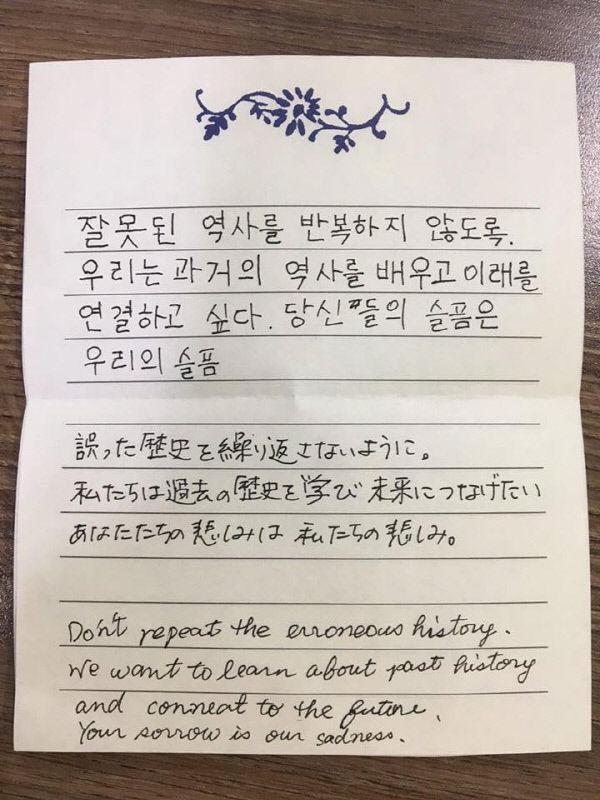 잘못된 역사를 반복하지 않도록.
우리는 과거의 역사를 배우고 이래를
연결하고 싶다. 당신들의 슬픔은
우리의 슬픔
誤った歴史を繰り返さないように。
私たちは過去の歴史を学び 未来につなげたい
あなたたちの悲しみは 私たちの悲しみ。
Don't repeat the erroneous history.
We want to learn about past history
and conneat to the future.
Your sorrow is our sadness.